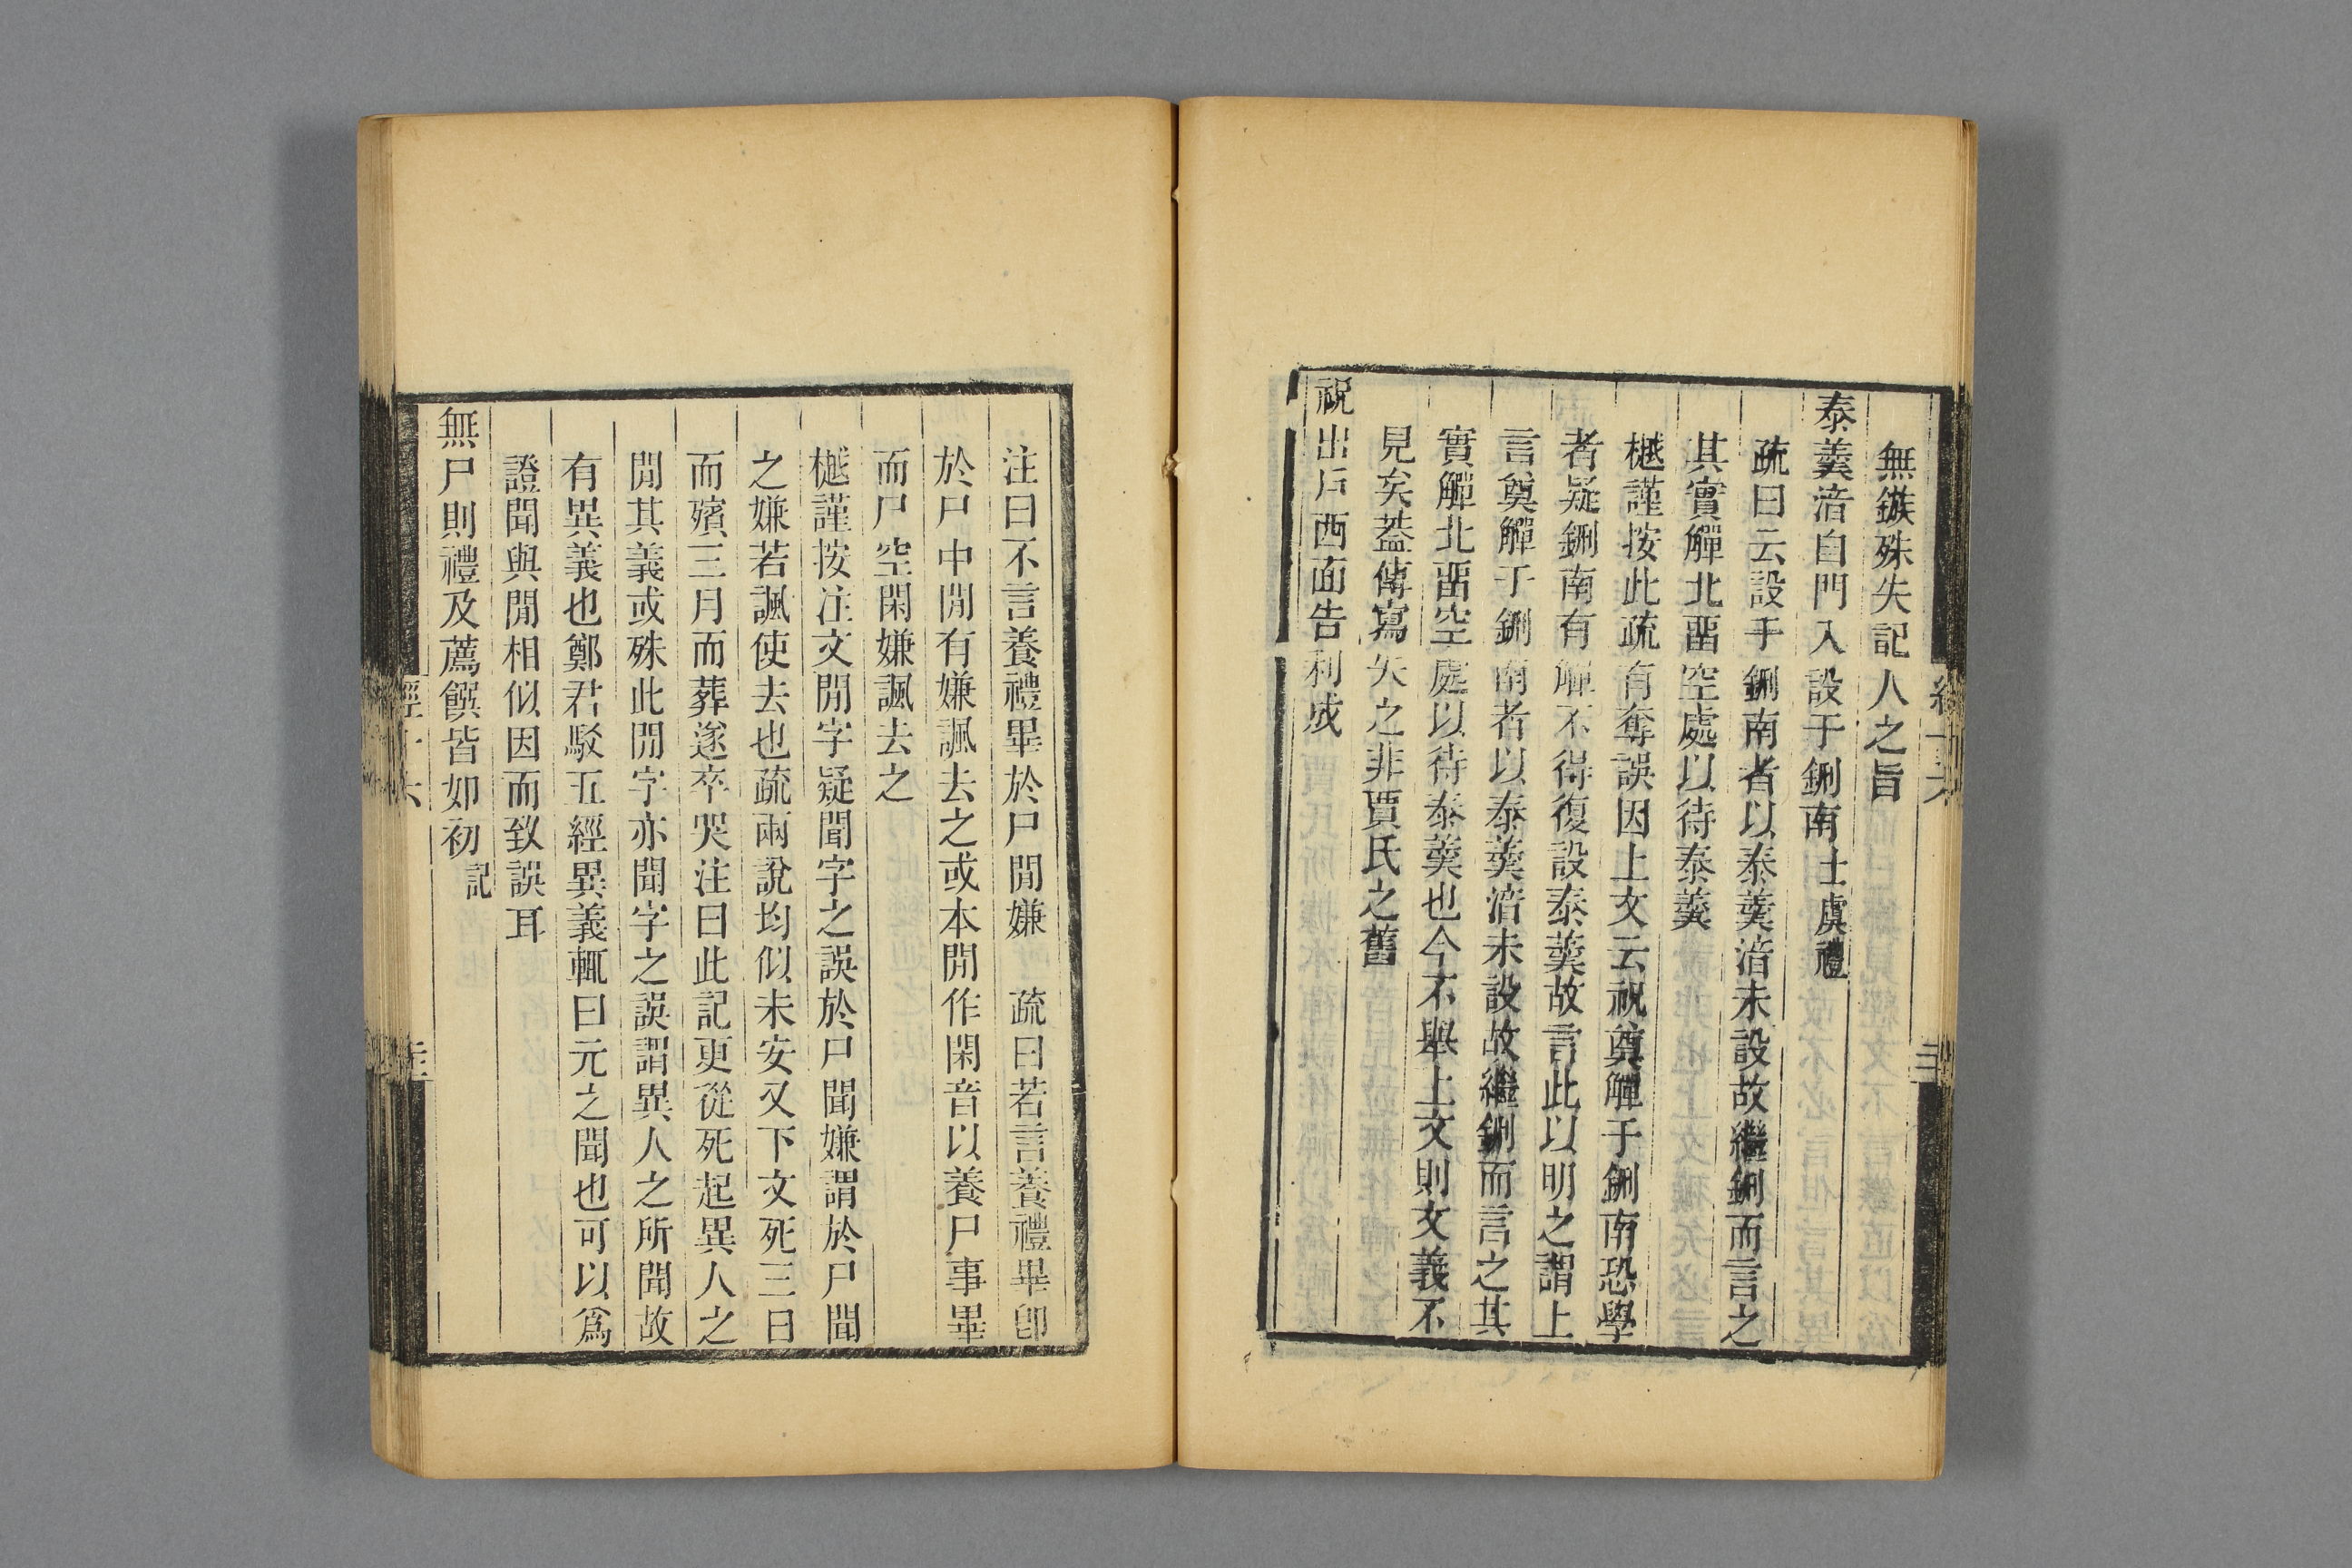 無鏃殊失記人之旨
泰羹湆自門入設于鉶南士虞禮
疏曰云設于鉶南者以泰羹湆未設故繼鉶而言之
其實觶北畱空處以待泰羹
樾謹按此疏有奪誤因上文云祝奠觶于鉶南恐學
者疑鉶南有觶不得復設泰羹故言此以明之謂上
言奠觶于鉶南者以泰羹湆未設故繼鉶而言之其
實觶北畱空處以待泰羹也今不舉上文則文義不
見矣葢傳寫失之非賈氏之舊
祝出戶西面告利成
注曰不言養禮畢於尸閒嫌 疏曰若言養禮畢卽
於尸中閒有嫌諷去之或本閒作閑音以養尸事畢
而尸空閑嫌諷去之
樾謹按注文閒字疑聞字之誤於尸聞嫌謂於尸聞
之嫌若諷使去也疏兩說均似未安又下文死三日
而殯三月而葬遂卒哭注曰此記更從死起異人之
閒其義或殊此閒字亦聞字之誤謂異人之所聞故
有異義也鄭君駁五經異義輒曰元之聞也可以爲
證聞與閒相似因而致誤耳
無尸則禮及薦饌皆如初記
經十六